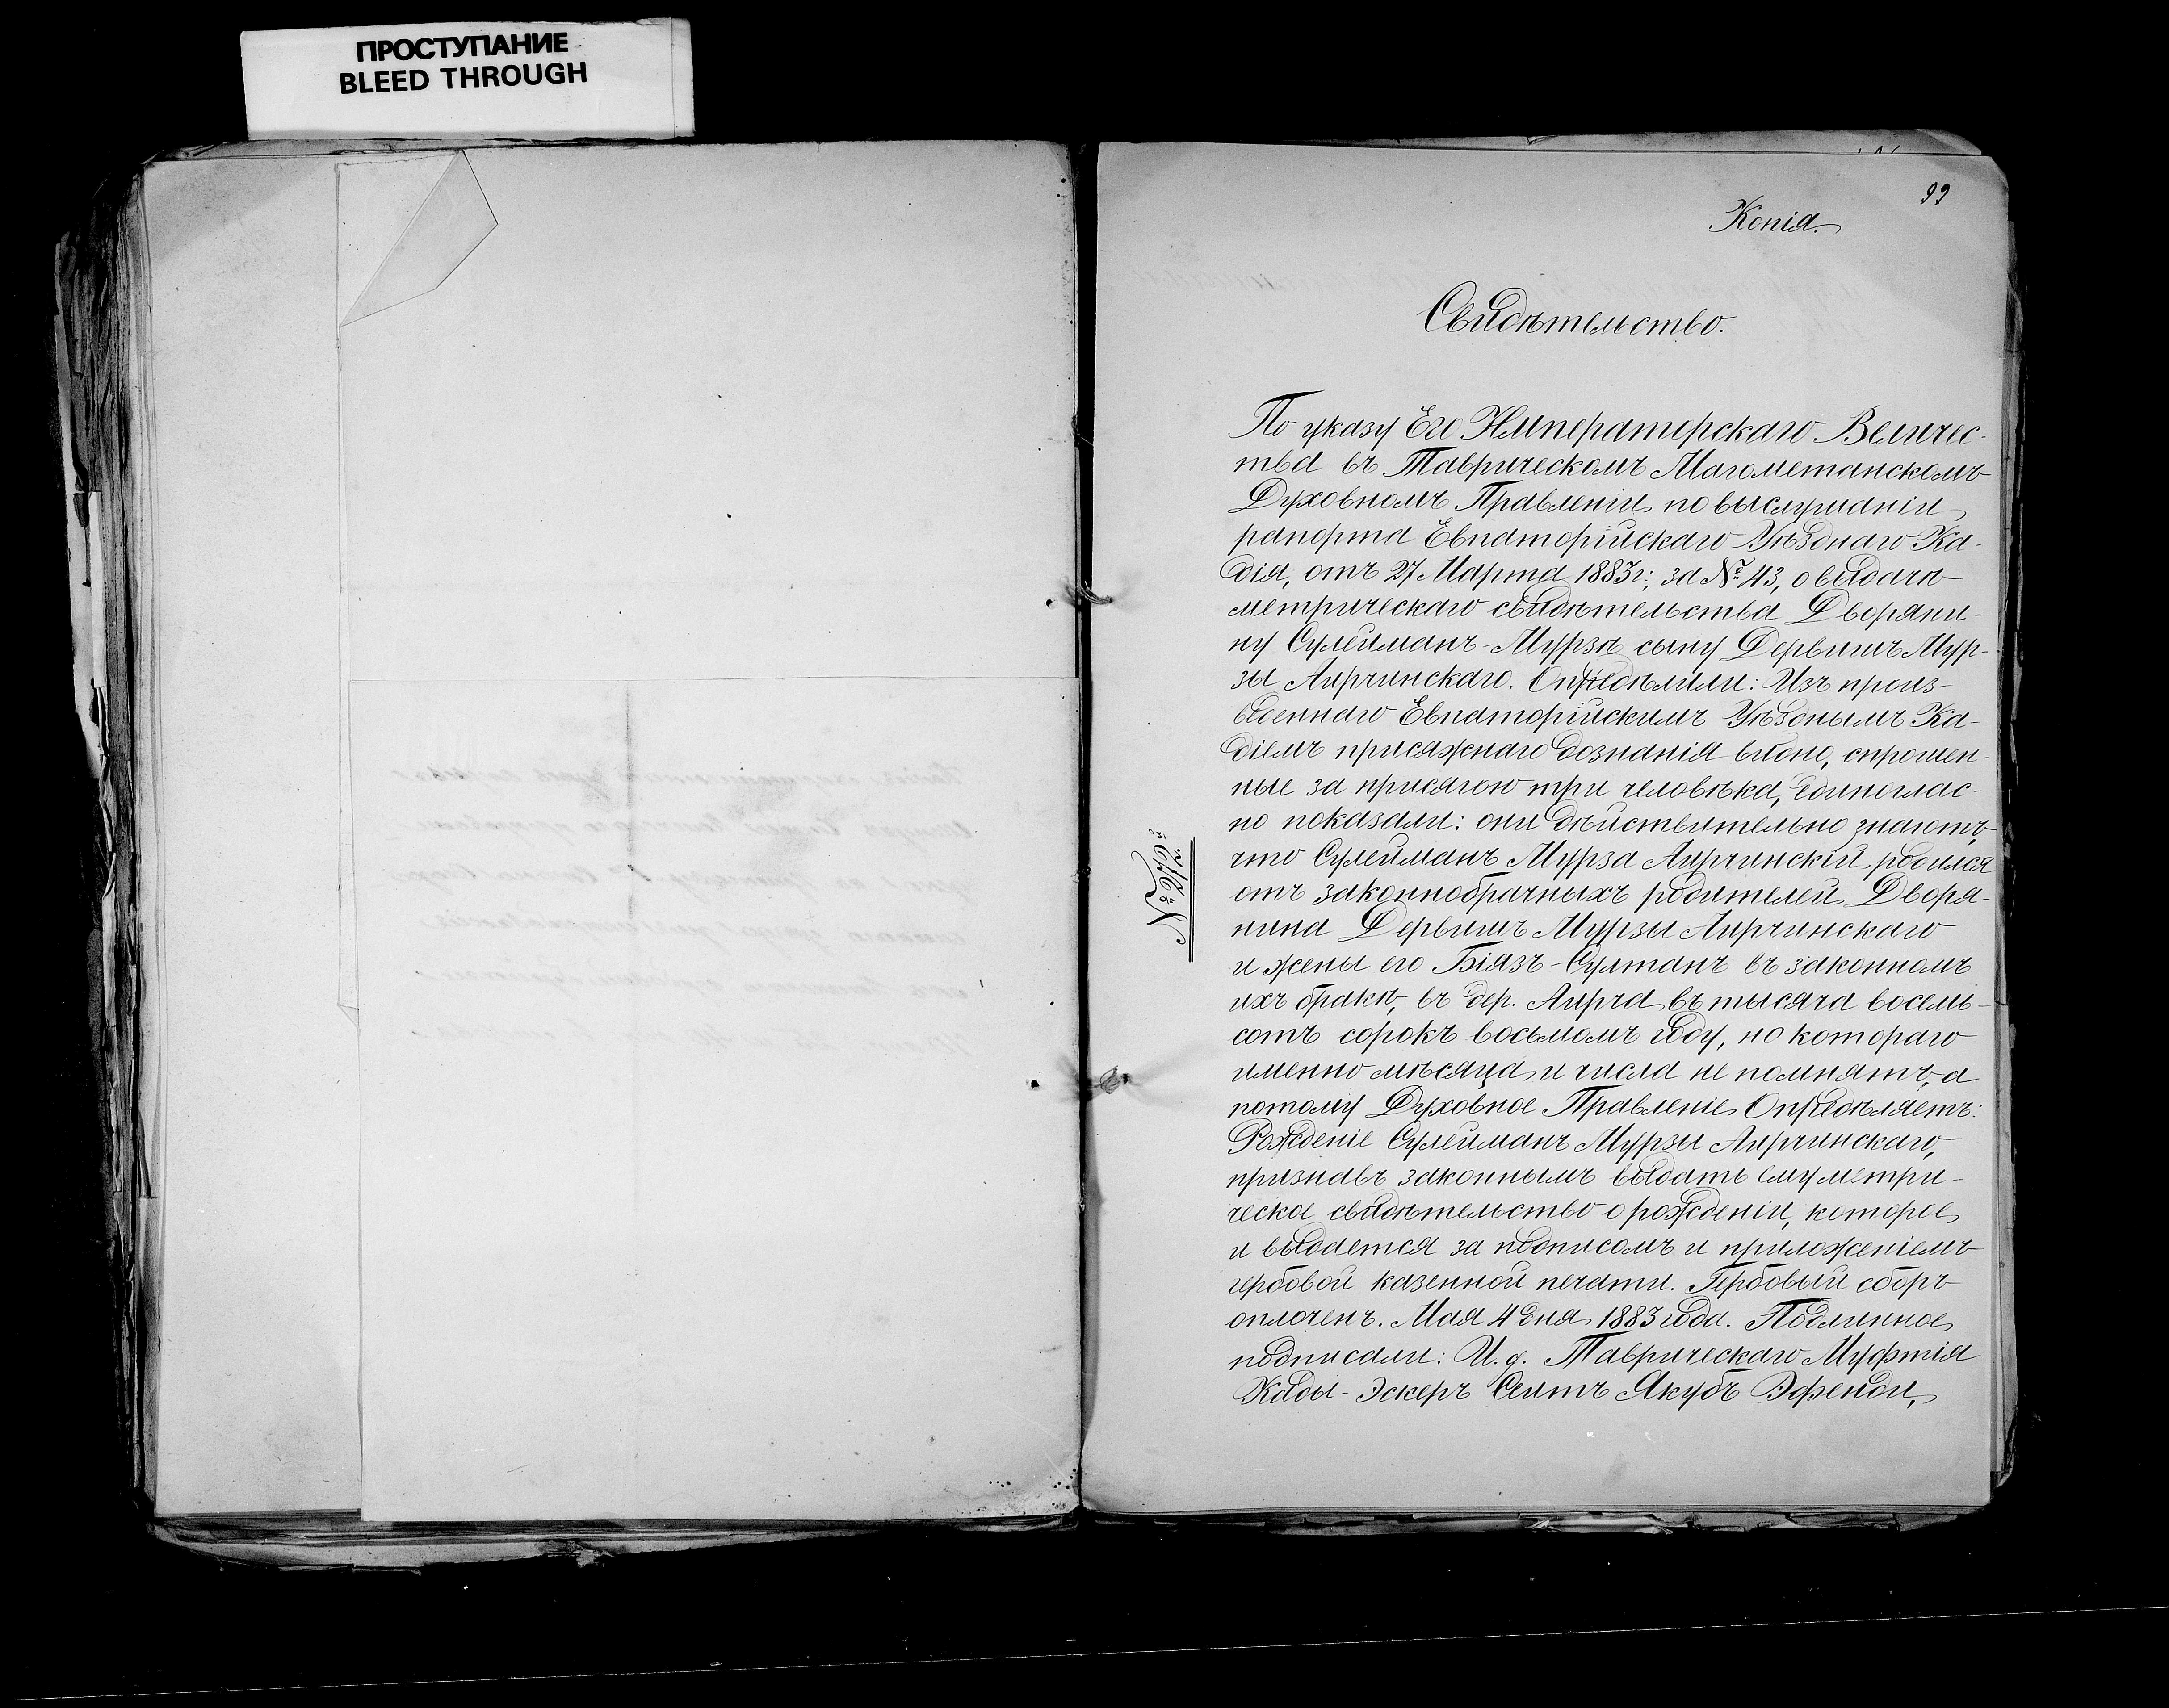 ПРОСТУПАНИЕ
BLEED THROUGH
99
Копія.
Свидѣтельство.
По указу Его Императорскаго Величес-
тва въ Таврическомъ Магометанскомъ
Духовномъ Правленіи по выслушаніи
рапорта Евпаторійскаго Уѣзднаго Ка-
дія, отъ 27 Марта 1883 г., за № 43, о выдачѣ
метрическаго свидѣтельства Дворяни-
ну Сулейманъ-Мурзѣ сыну Дервишъ Мур-
зы Аирчинскаго. Опредѣлили: Изъ произ-
веденнаго Евпаторійскимъ Уѣзднымъ Ка-
діемъ присяжнаго дознанія видно, спрошен-
ные за присягою три человѣка, единоглас-
но показали: они дѣйствительно знаютъ,
что Сулейманъ Мурза Аирчинскій родился
отъ законнобрачныхъ родителей Дворя-
нина Дервишъ Мурзы Аирчинскаго
и жены его Біязъ-Султанъ въ законномъ
ихъ бракѣ, въ дер. Аирча въ тысяча восемь-
сотъ сорокъ восьмомъ году, но котораго
именно мѣсяца и числа не помнятъ, а
потому Духовное Правленіе Опредѣляетъ:
Рожденіе Сулейманъ Мурзы Аирчинскаго,
признавъ законнымъ выдать ему метри-
ческое свидѣтельство о рожденіи, которое
и выдается за подписомъ и приложеніемъ
гербовой казенной печати. Гербовый сборъ
оплоченъ. Мая 4 дня 1883 года. Подлинное
подписали: И. д. Таврическаго Муфтія
Кады-Эскеръ Сеитъ Якубъ Эфенди,